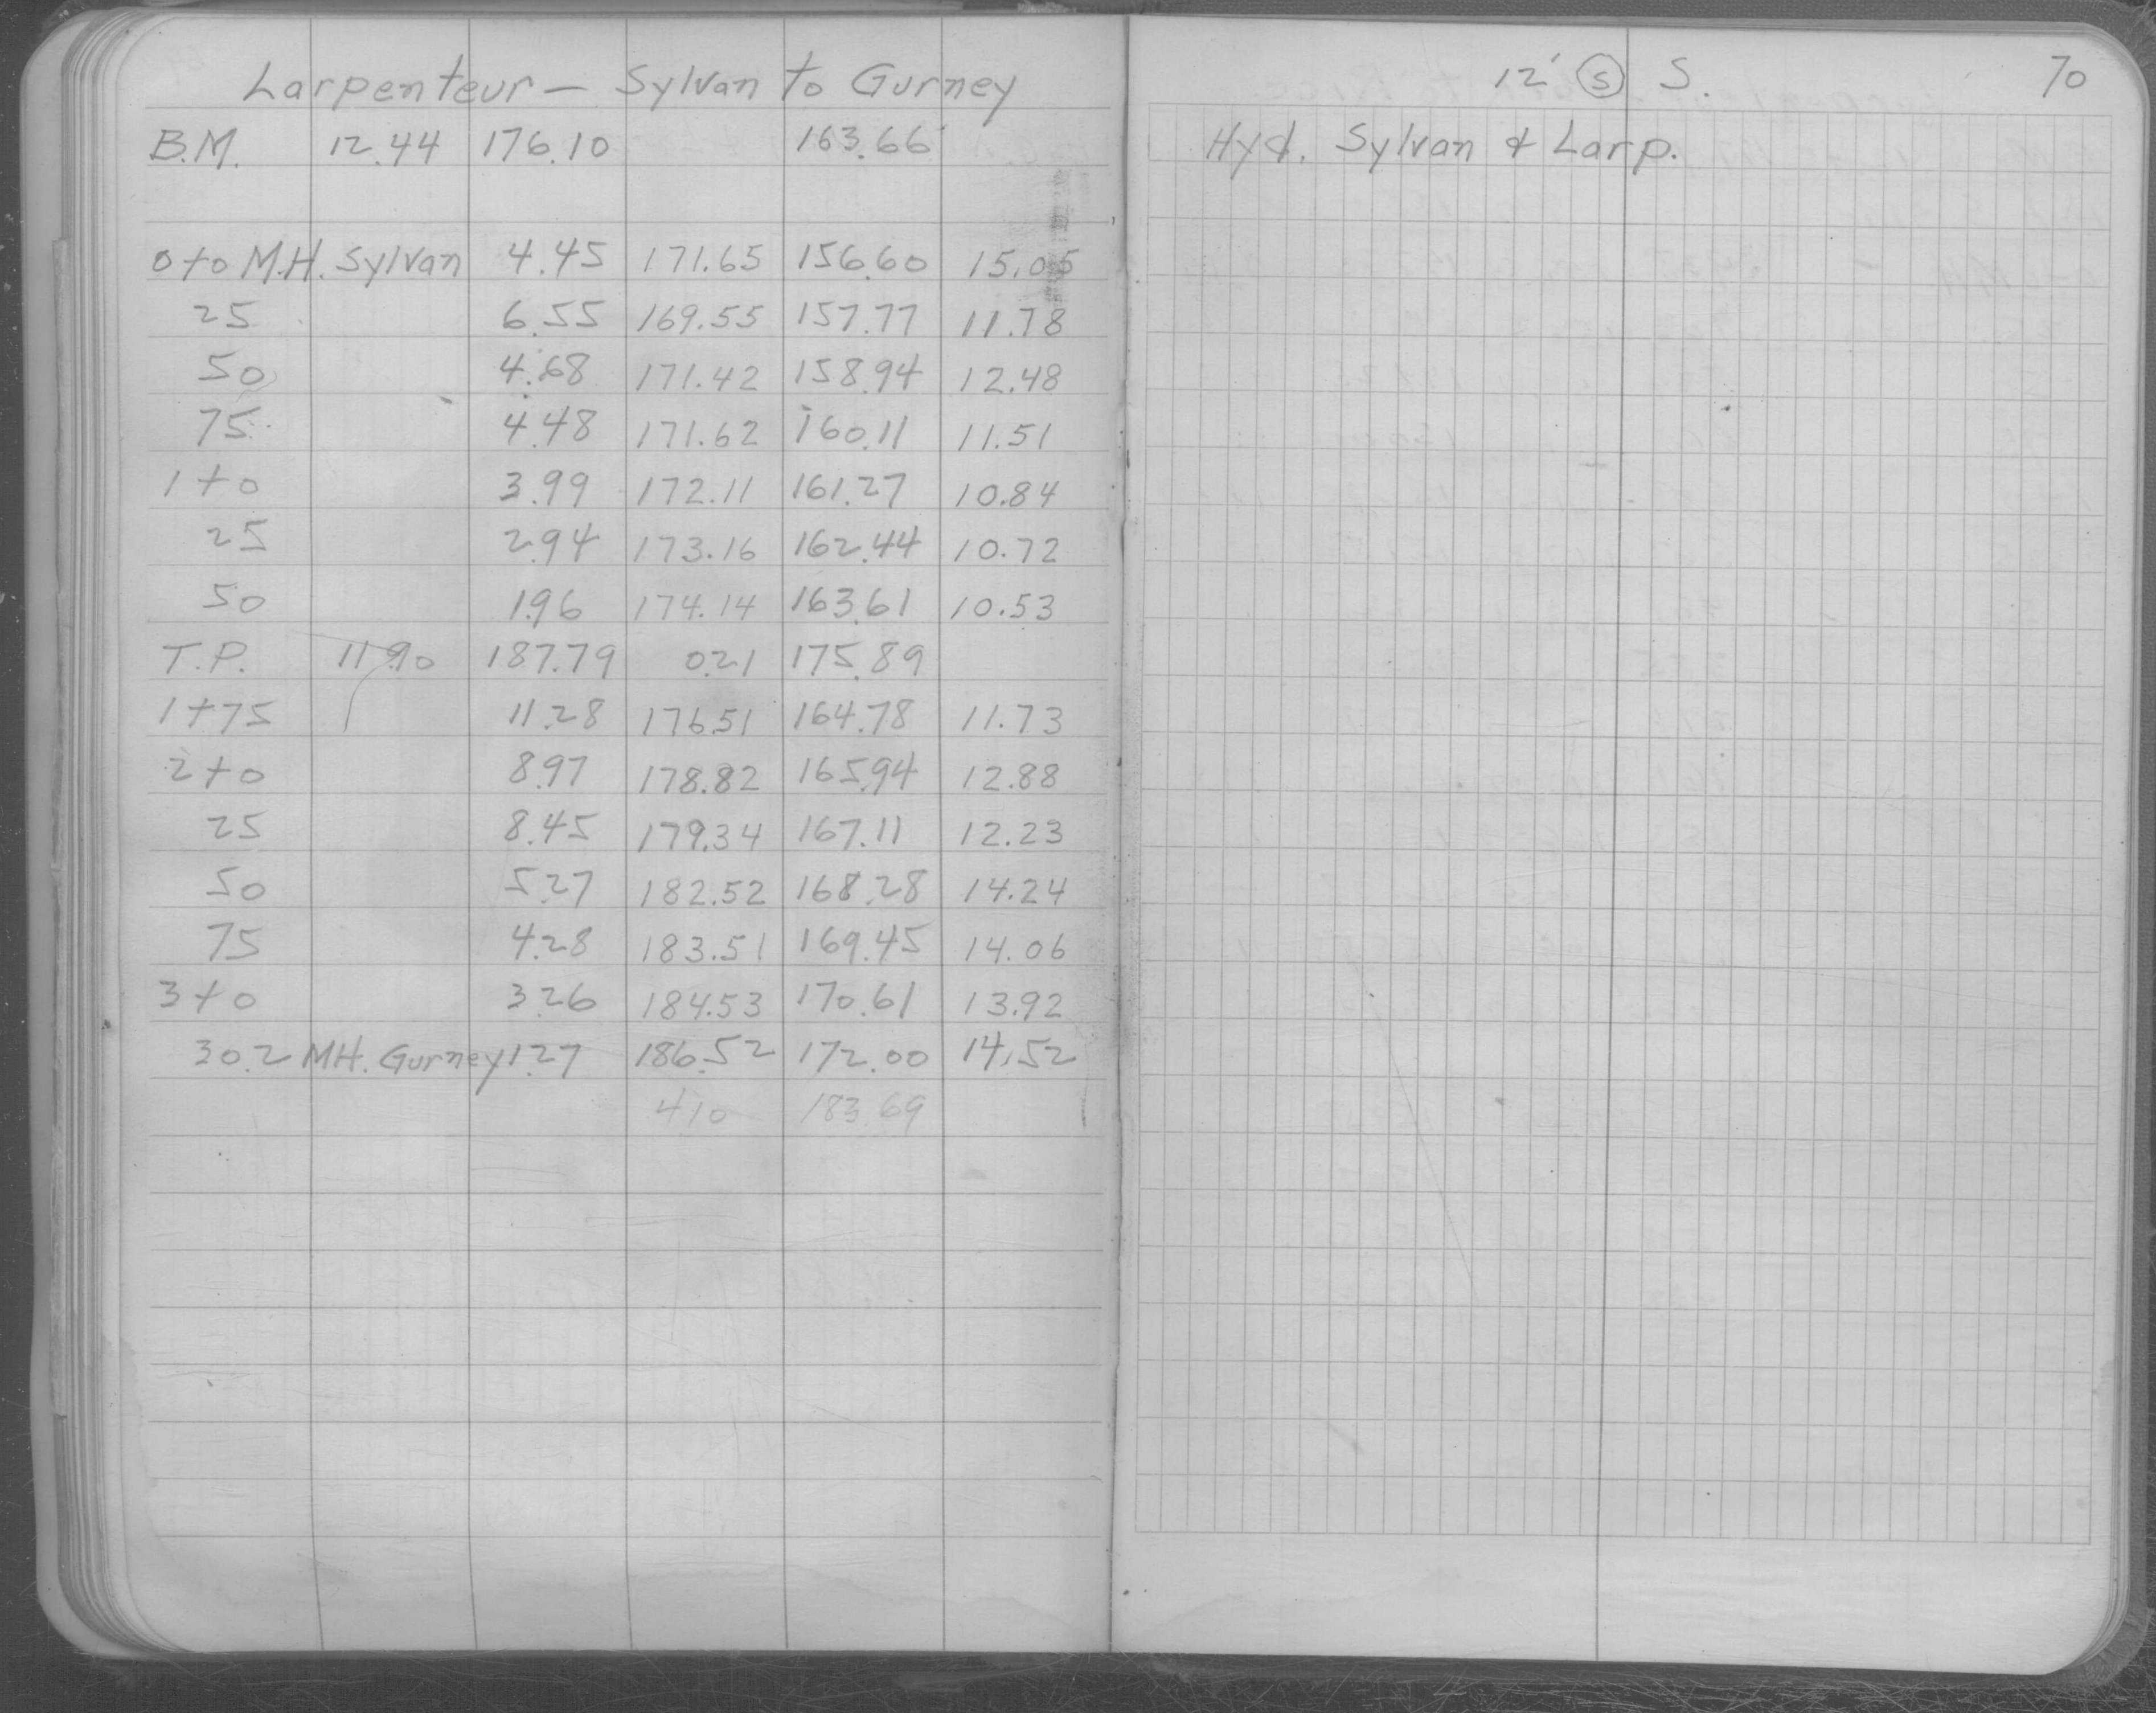 Larpenteur — Sylvan to Gurney
B.M. 12.44 176.10 163.66
0+0 M.H. Sylvan 4.45 171.65 156.60 15.05
25 6.55 169.55 157.77 11.78
50 4.68 171.42 158.94 12.48
75 4.48 171.62 160.11 11.51
1+0 3.99 172.11 161.27 10.84
25 2.94 173.16 162.44 10.72
50 1.96 174.14 163.61 10.53
T.P. 11.90 187.79 0.21 175.89
1+75 11.28 176.51 164.78 11.73
2+0 8.97 178.82 165.94 12.88
25 8.45 179.34 167.11 12.23
50 5.27 182.52 168.28 14.24
75 4.28 183.51 169.45 14.06
3+0 3.26 184.53 170.61 13.92
30.2 MH. Gurney 1.27 186.52 172.00 14.52
4.10 183.69
12' S S. 70
Hyd. Sylvan & Larp.